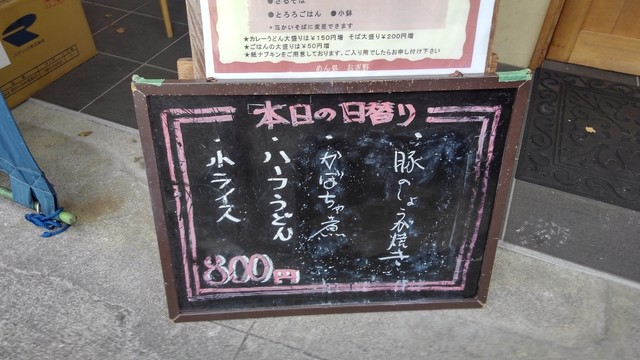 ●ざるそば
●とろろごはん ●小鉢
★カレーうどん大盛りは¥150円増 そば大盛り¥200円増
★ごはんの大盛りは¥50円増
★紙ナプキンをご用意しております、ご入用でしたらお申し付け下さい
本日の日替り
・豚のしょうが焼き
・かぼちゃ煮
・ハーフうどん
・小ライス
800円